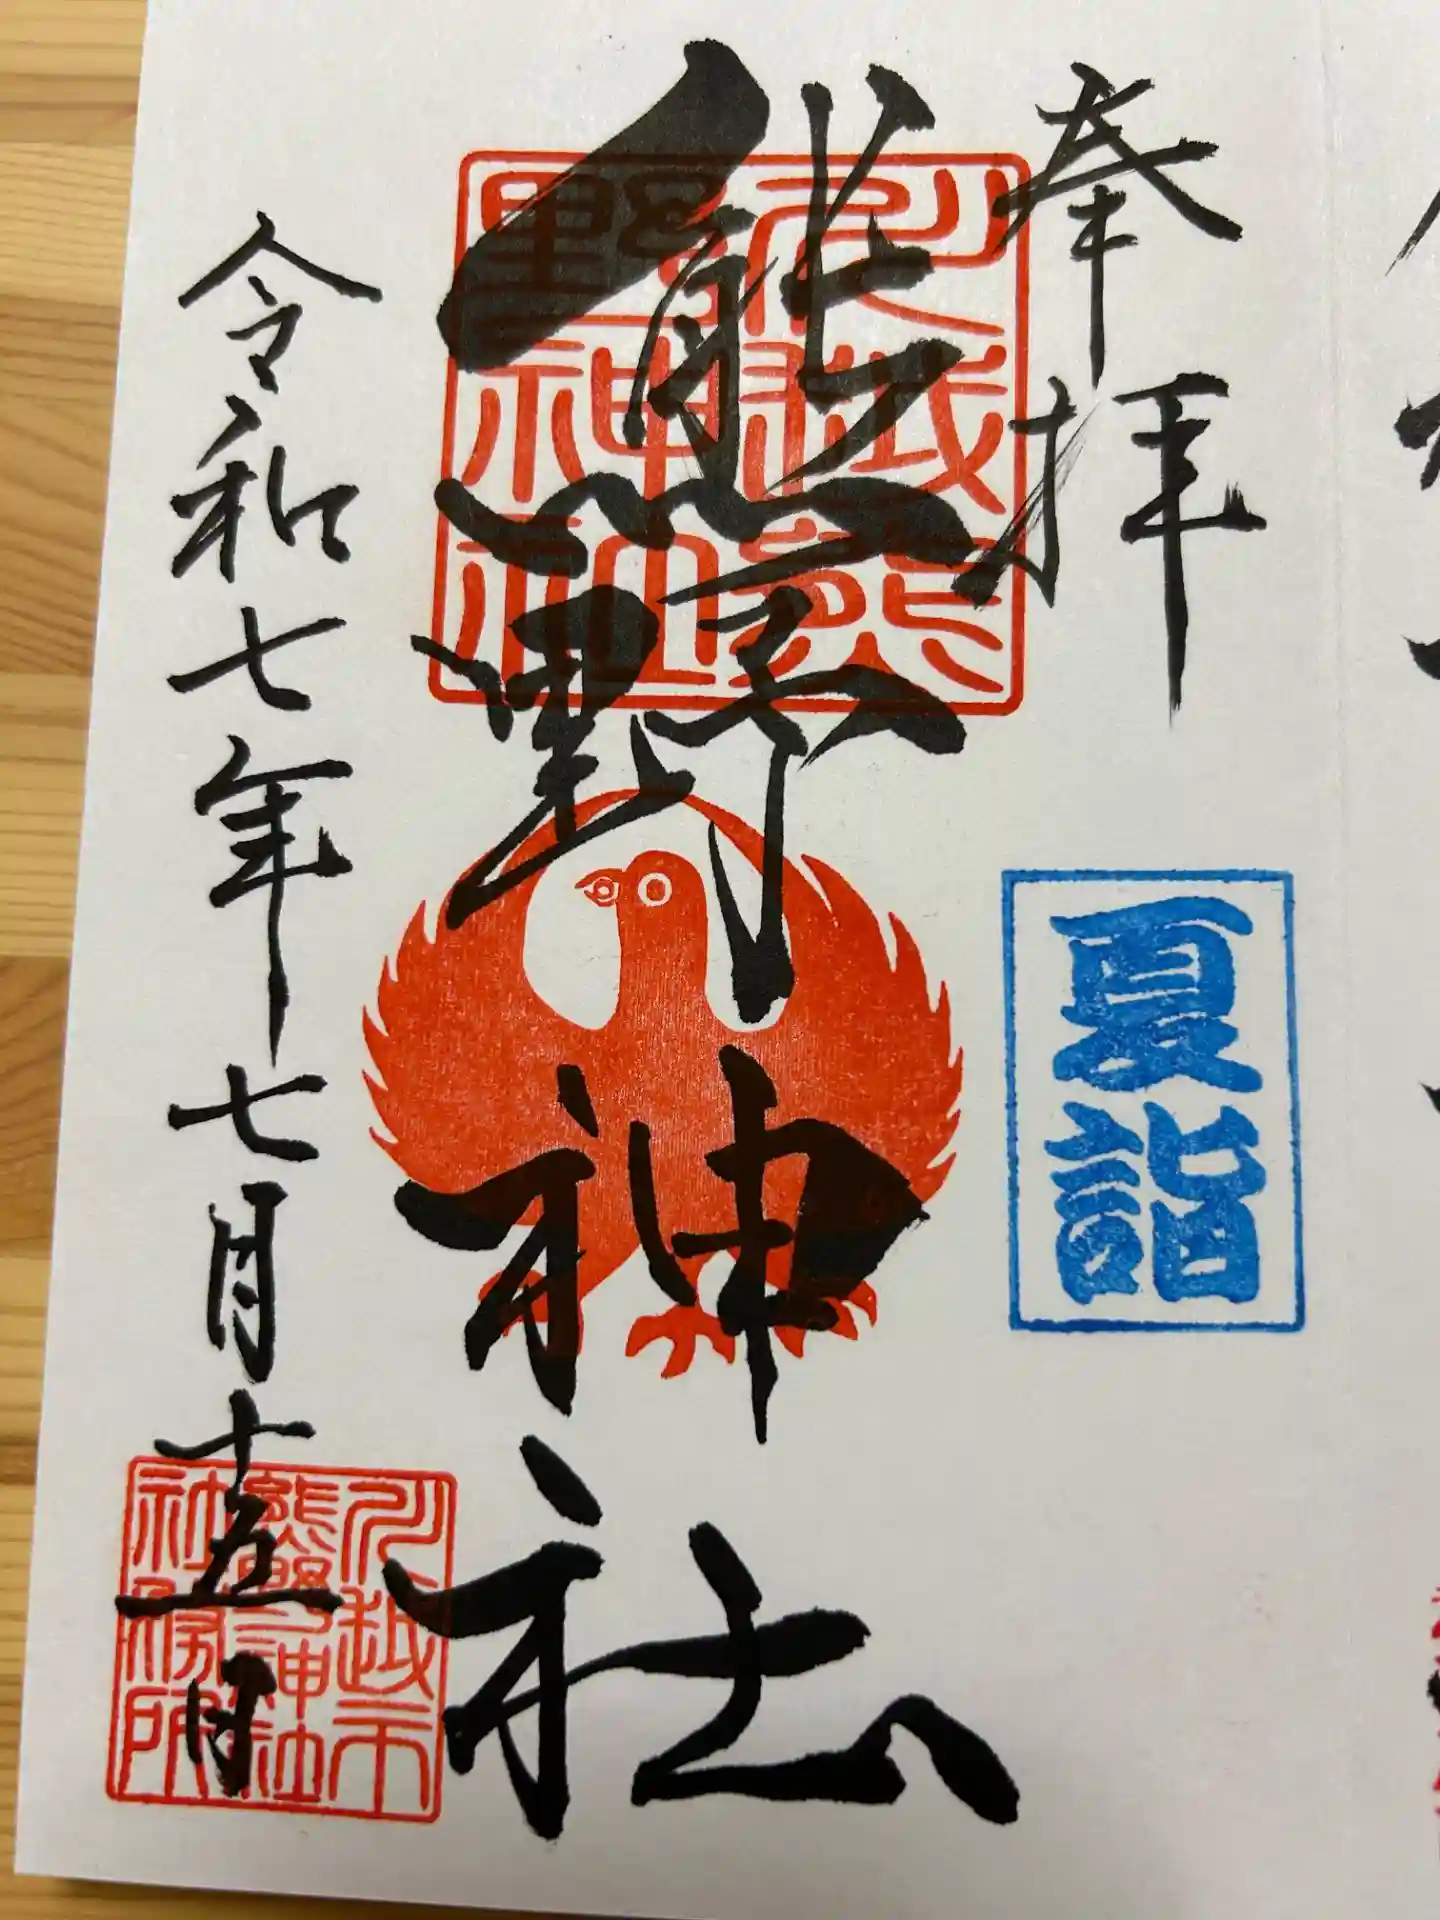 奉拝
川越熊
野神社
熊野神社
夏詣
令和七年七月十五日
川越市
熊野神社
社務所